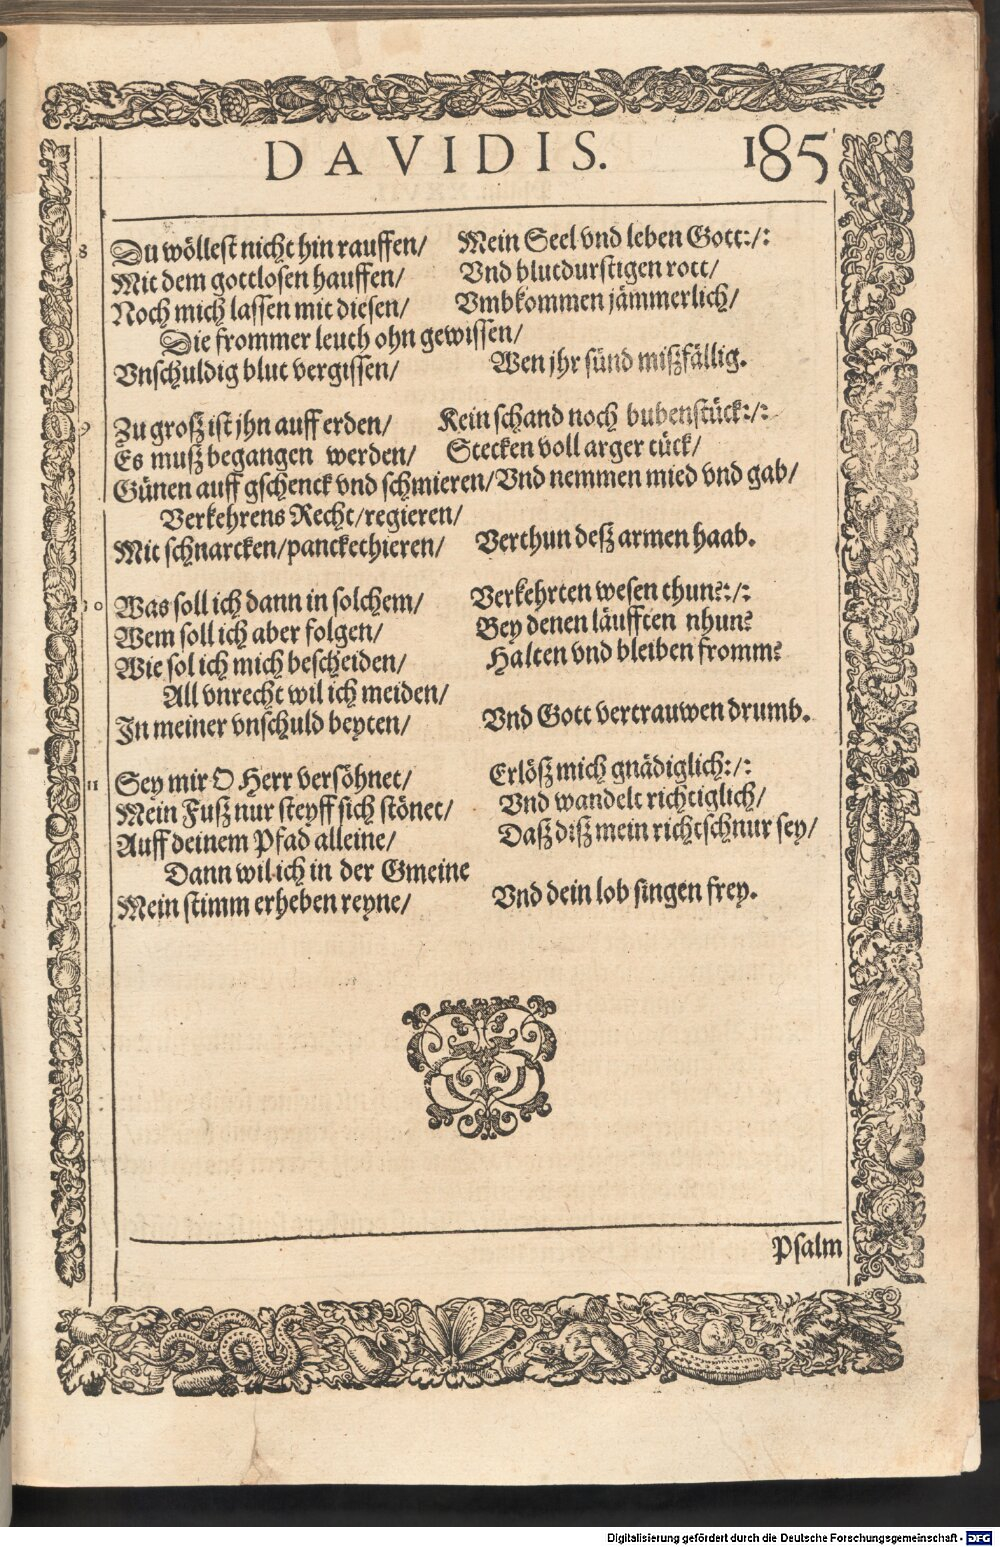 DAVIDIS. 185
8 Du wöllest nicht hin rauffen/ Mein Seel vnd leben Gott:/:
Mit dem gottlosen hauffen/ Vnd blutdurstigen rott/
Noch mich lassen mit diesen/ Vmbkommen jämmerlich/
Die frommer leuth ohn gewissen/
Vnschuldig blut vergissen/ Wen jhr sünd mißfällig.
9 Zu groß ist jhn auff erden/ Kein schand noch bubenstück:/:
Es muß begangen werden/ Stecken voll arger tück/
Günen auff gschenck vnd schmieren/ Vnd nemmen mied vnd gab/
Verkehrens Recht/regieren/
Mit schnarcken/panckethieren/ Verthun deß armen haab.
10 Was soll ich dann in solchem/ Verkehrten wesen thun?:/:
Wem soll ich aber folgen/ Bey denen läufften nhun?
Wie sol ich mich bescheiden/ Halten vnd bleiben fromm?
All vnrecht wil ich meiden/
In meiner vnschuld beyten/ Vnd Gott vertrauwen drumb.
11 Sey mir O Herr versöhnet/ Erlöß mich gnädiglich:/:
Mein Fuß nur steyff sich stönet/ Vnd wandelt richtiglich/
Auff deinem Pfad alleine/ Daß diß mein richtschnur sey/
Dann wil ich in der Gmeine
Mein stimm erheben reyne/ Vnd dein lob singen frey.
Psalm
Digitalisierung gefördert durch die Deutsche Forschungsgemeinschaft - DFG